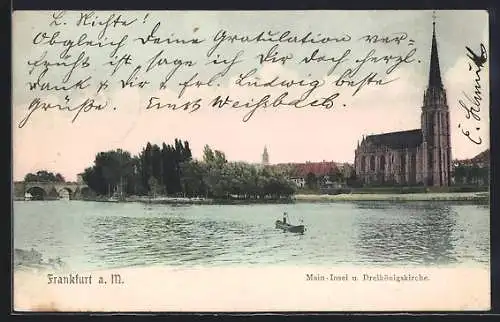 L. Richte!
Obgleich Deine Gratulation ver-
früht ist, sage ich Dir doch herzl.
Dank u. Dir u. frl. Ludwig beste
Grüße Ernst Weißhbach
E. Schmidt
Frankfurt a. M.
Main-Insel u. Dreikönigskirche.